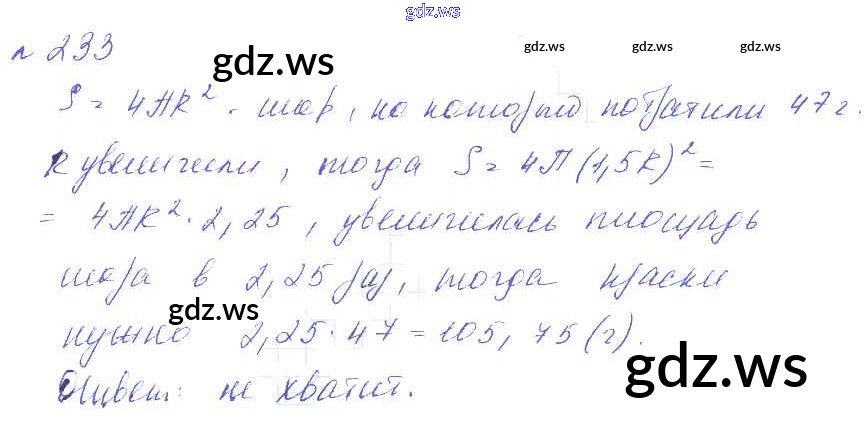 gdz.ws
№ 233
gdz.ws gdz.ws gdz.ws gdz.ws
S = 4ПR² - шар, на который потратили 47 г.
R увеличили, тогда S = 4П(1,5R)² =
= 4ПR² · 2,25, увеличилась площадь
шара в 2,25 раз, тогда краски
gdz.ws
нужно 2,25 · 47 = 105,75 (г).
gdz.ws
Ответ: не хватит.